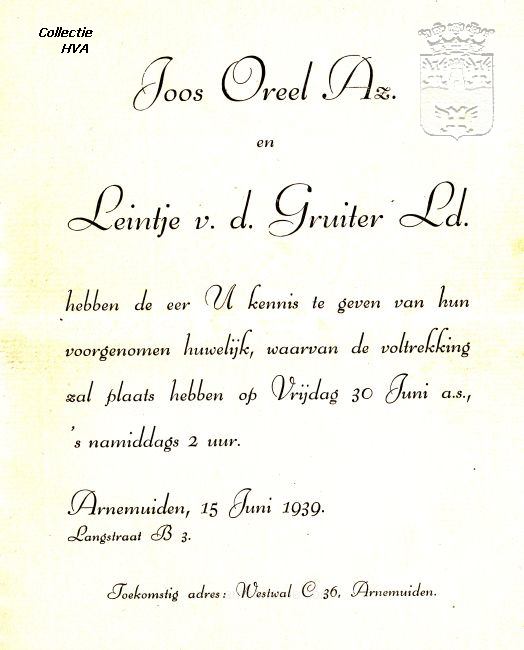 Collectie
HVA
Joos Oreel Az.
en
Leintje v. d. Gruiter Ld.
hebben de eer U kennis te geven van hun
voorgenomen huwelijk, waarvan de voltrekking
zal plaats hebben op Vrijdag 30 Juni a.s.,
's namiddags 2 uur.
Arnemuiden, 15 Juni 1939.
Langstraat B 3.
Toekomstig adres: Westwal C 36, Arnemuiden.